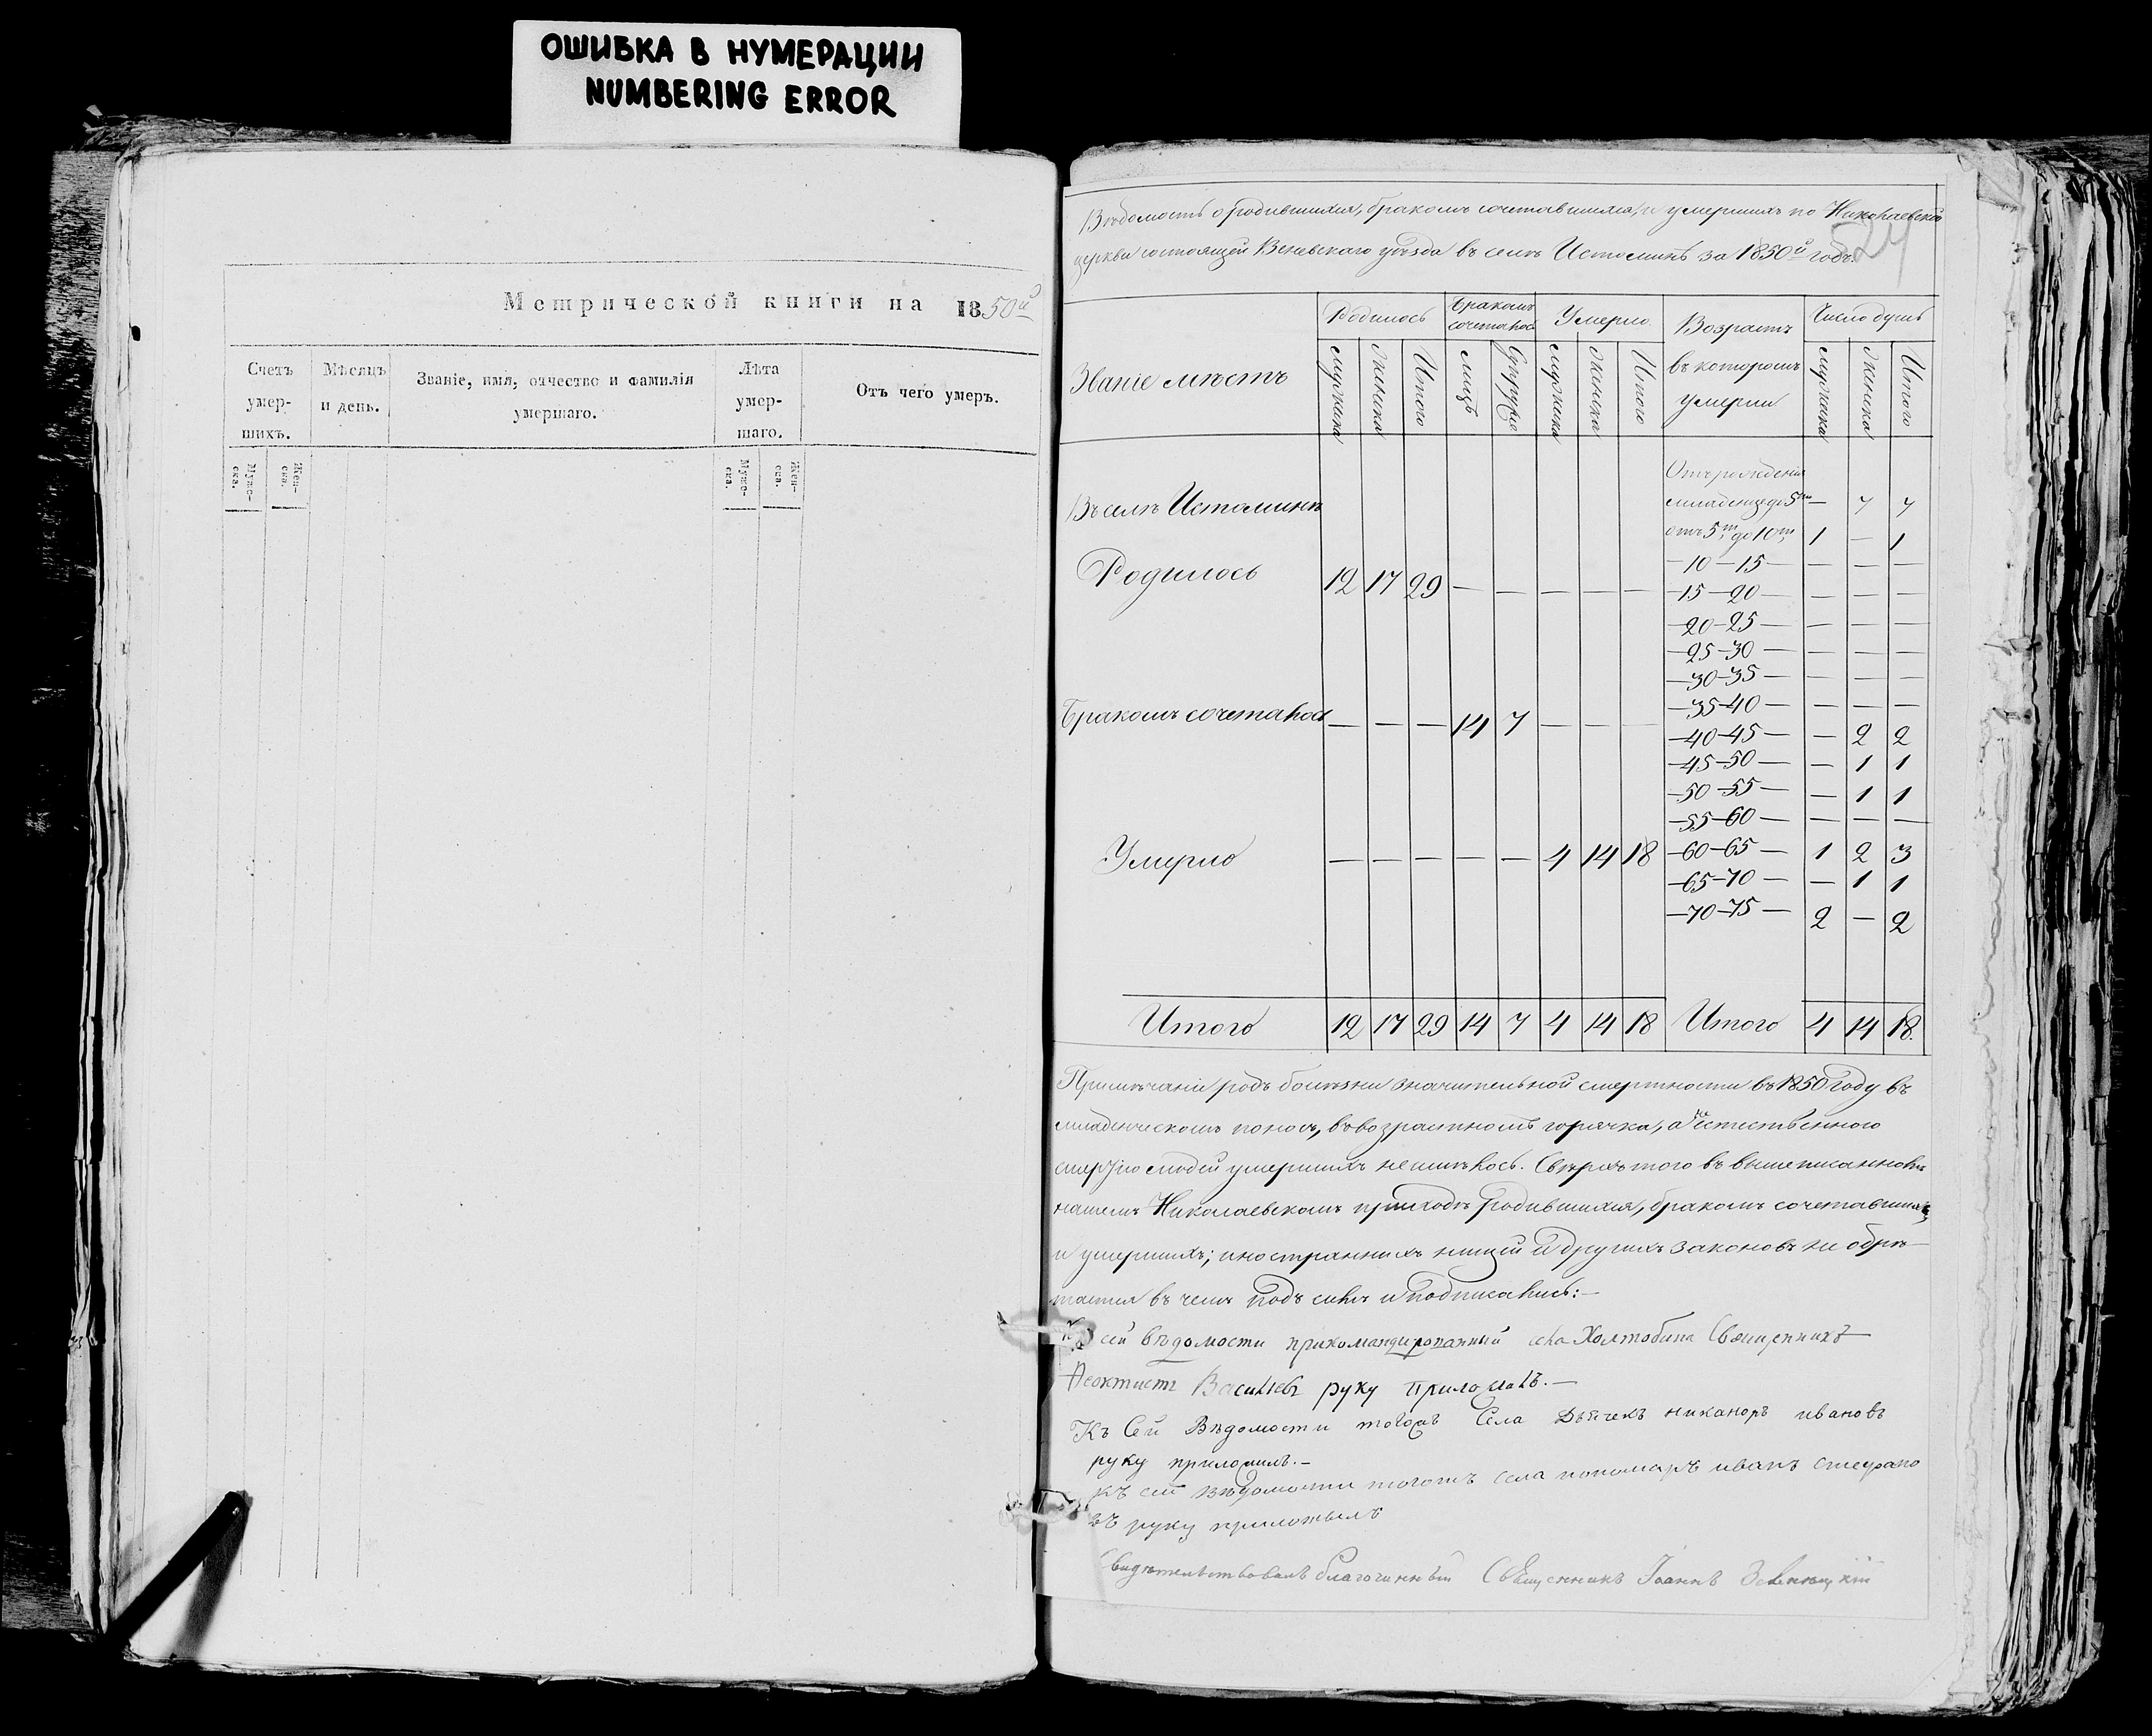 ОШИБКА В НУМЕРАЦИИ
NUMBERING ERROR
Метрической книги на 1850й
Счетъ умер-шихъ.
Мѣсяцъ и день.
Званіе, имя, отчество и фамилія умершаго.
Лѣта умер-шаго.
Отъ чего умеръ.
Муже-ска. Жен-ска. Муже-ска. Жен-ска.
Вѣдомость о родившихся, бракомъ сочетавшихся, и умершихъ по Николаевской
церкви состоящей Веневскаго уѣзда въ селѣ Истоминѣ за 1850й годъ.
24
Званіе мѣстъ
Родилось
Бракомъ сочеталось
Умерло
Возрастъ въ которомъ умерли
Число душъ
мужеска женска Итого лицъ Супруже мужеска женска Итого мужеска женска Итого
Въ селѣ Истоминѣ
Отъ рожденія
младенце до 5ти — 7 7
отъ 5ти до 10ти 1 — 1
Родилось 12 17 29 — — — — —
—10—15— — — —
—15—20— — — —
—20—25— — — —
—25—30— — — —
—30—35— — — —
—35—40— — — —
Бракомъ сочеталось — — — 14 7 — — —
—40—45— — 2 2
—45—50— — 1 1
—50—55— — 1 1
—55—60— — — —
Умерло — — — — — 4 14 18
—60—65— 1 2 3
—65—70— — 1 1
—70—75— 2 — 2
Итого 12 17 29 14 7 4 14 18 Итого 4 14 18.
Примѣчаніе родъ болѣзни значительной смертности въ 1850 году въ
младенческомъ поносъ, въ возрастномъ горячка, а не естественного
смертію людей умершихъ не имѣлось. Сверхъ того въ вышеписанномъ
нашемъ Николаевскомъ приходѣ родившихся, бракомъ сочетавшихся
и умершихъ; иностранныхъ націй и другихъ законовъ не обрѣ-
тается въ чемъ подъ симъ и подписались:—
Къ сей вѣдомости прикомандированный села Холтобина Священникъ
Ѳеоктистъ Васильевъ руку приложилъ.—
Къ Сей Вѣдомости тогожъ Села Дьячекъ никаноръ ивановъ
руку приложилъ.—
къ сей вѣдомости тогожъ села пономарь иванъ стефано
въ руку приложилъ
Свидѣтельствовалъ благочинный Священникъ Іоаннъ